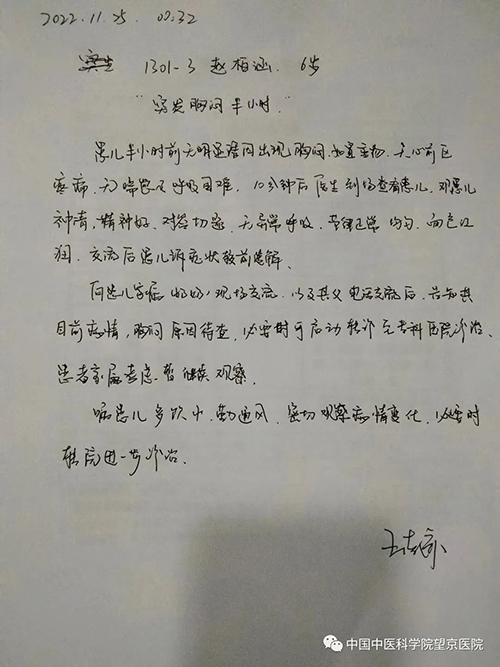 2022.11.25. 00:32
1301-3 赵柏涵. 6岁
"突发胸闷半小时."
患儿半小时前无明显诱因出现胸闷,如置重物.无心前区
疼痛,无喘憋及呼吸困难. 10分钟后医生到场查看患儿,观患儿
神清,精神好.对答切题,无异常呼吸,节律正常均匀.面色红
润.交流后患儿诉症状较前缓解.
向患儿家属(奶奶)现场交流.以及其父电话交流后.告知其
目前病情,胸闷原因待查,必要时可启动转诊至专科医院诊治.
患者家属考虑暂继续观察.
嘱患儿多饮水.勤通风.密切观察病情变化.必要时
转院进一步诊治.
中国中医科学院望京医院